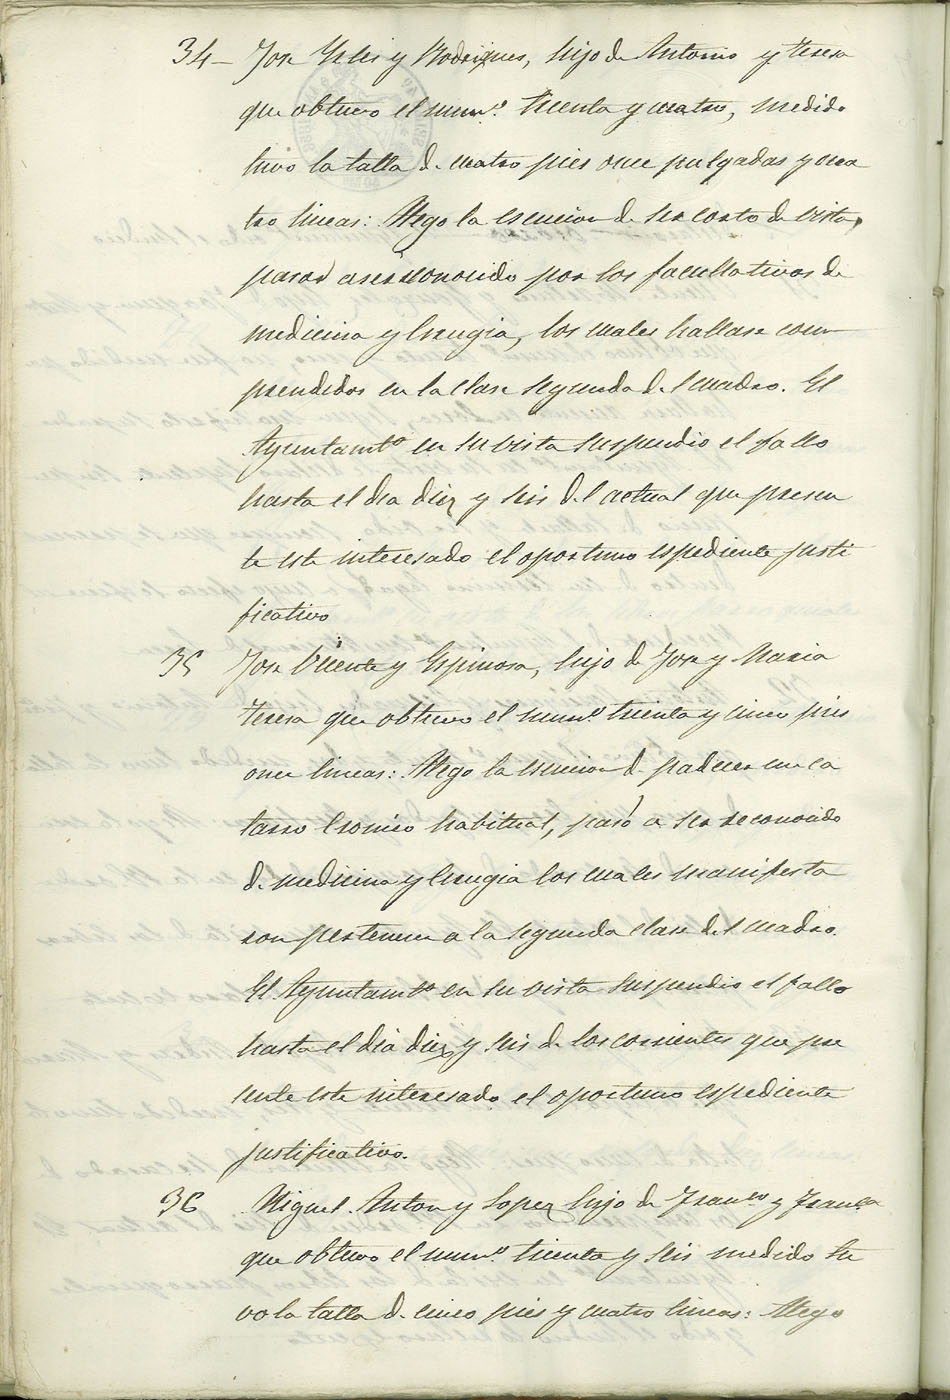 34- Jose Yeles y Rodrigues, hijo de Antonio y Teresa
que obtuvo el num.º treinta y cuatro, medido
tuvo la talla de cuatro pies once pulgadas y cua
tro lineas: Alego la esencion de ser corto de vista,
pasad a ser reconocido por los facultativos de
medicina y Cirugia, los cuales hallase com
prendidos en la clase segunda del cuadro. El
Ayuntamto en su vista suspendio el fallo
hasta el dia diez y seis del actual que presen
te este interesado el oportuno espediente justi
ficativo
35 Jose Vicente y Espinosa, hijo de Jose y Maria
Teresa que obtuvo el num.º treinta y cinco pies
once lineas: Alego la esencion de padecer un ca
tarro Cronico habitual, pasó a ser reconocido
de medicina y Cirugia los cuales manifesta
ron pertenecer a la segunda clase del cuadro.
El Ayuntamto en su vista suspendio el fallo
hasta el dia diez y seis de los corrientes que pre
sente este interesado el oportuno espediente
justificativo.
36 Miguel Anton y Lopez hijo de Franco y Franca
que obtuvo el num.º treinta y seis medido tu
vo la talla de cinco pies y cuatro lineas: Alego